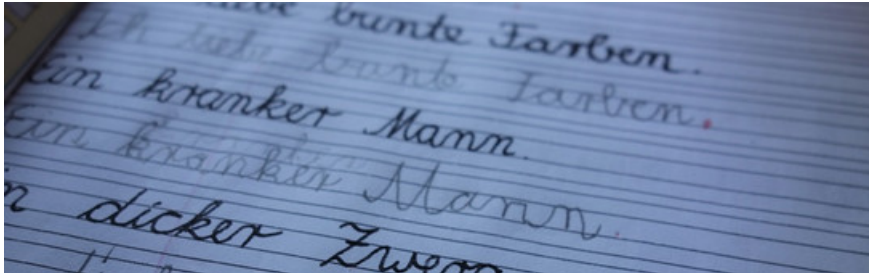 bunte Farben.
Ich liebe bunte Farben.
Ein kranker Mann.
Ein kranker Mann.
dicker Zwerg